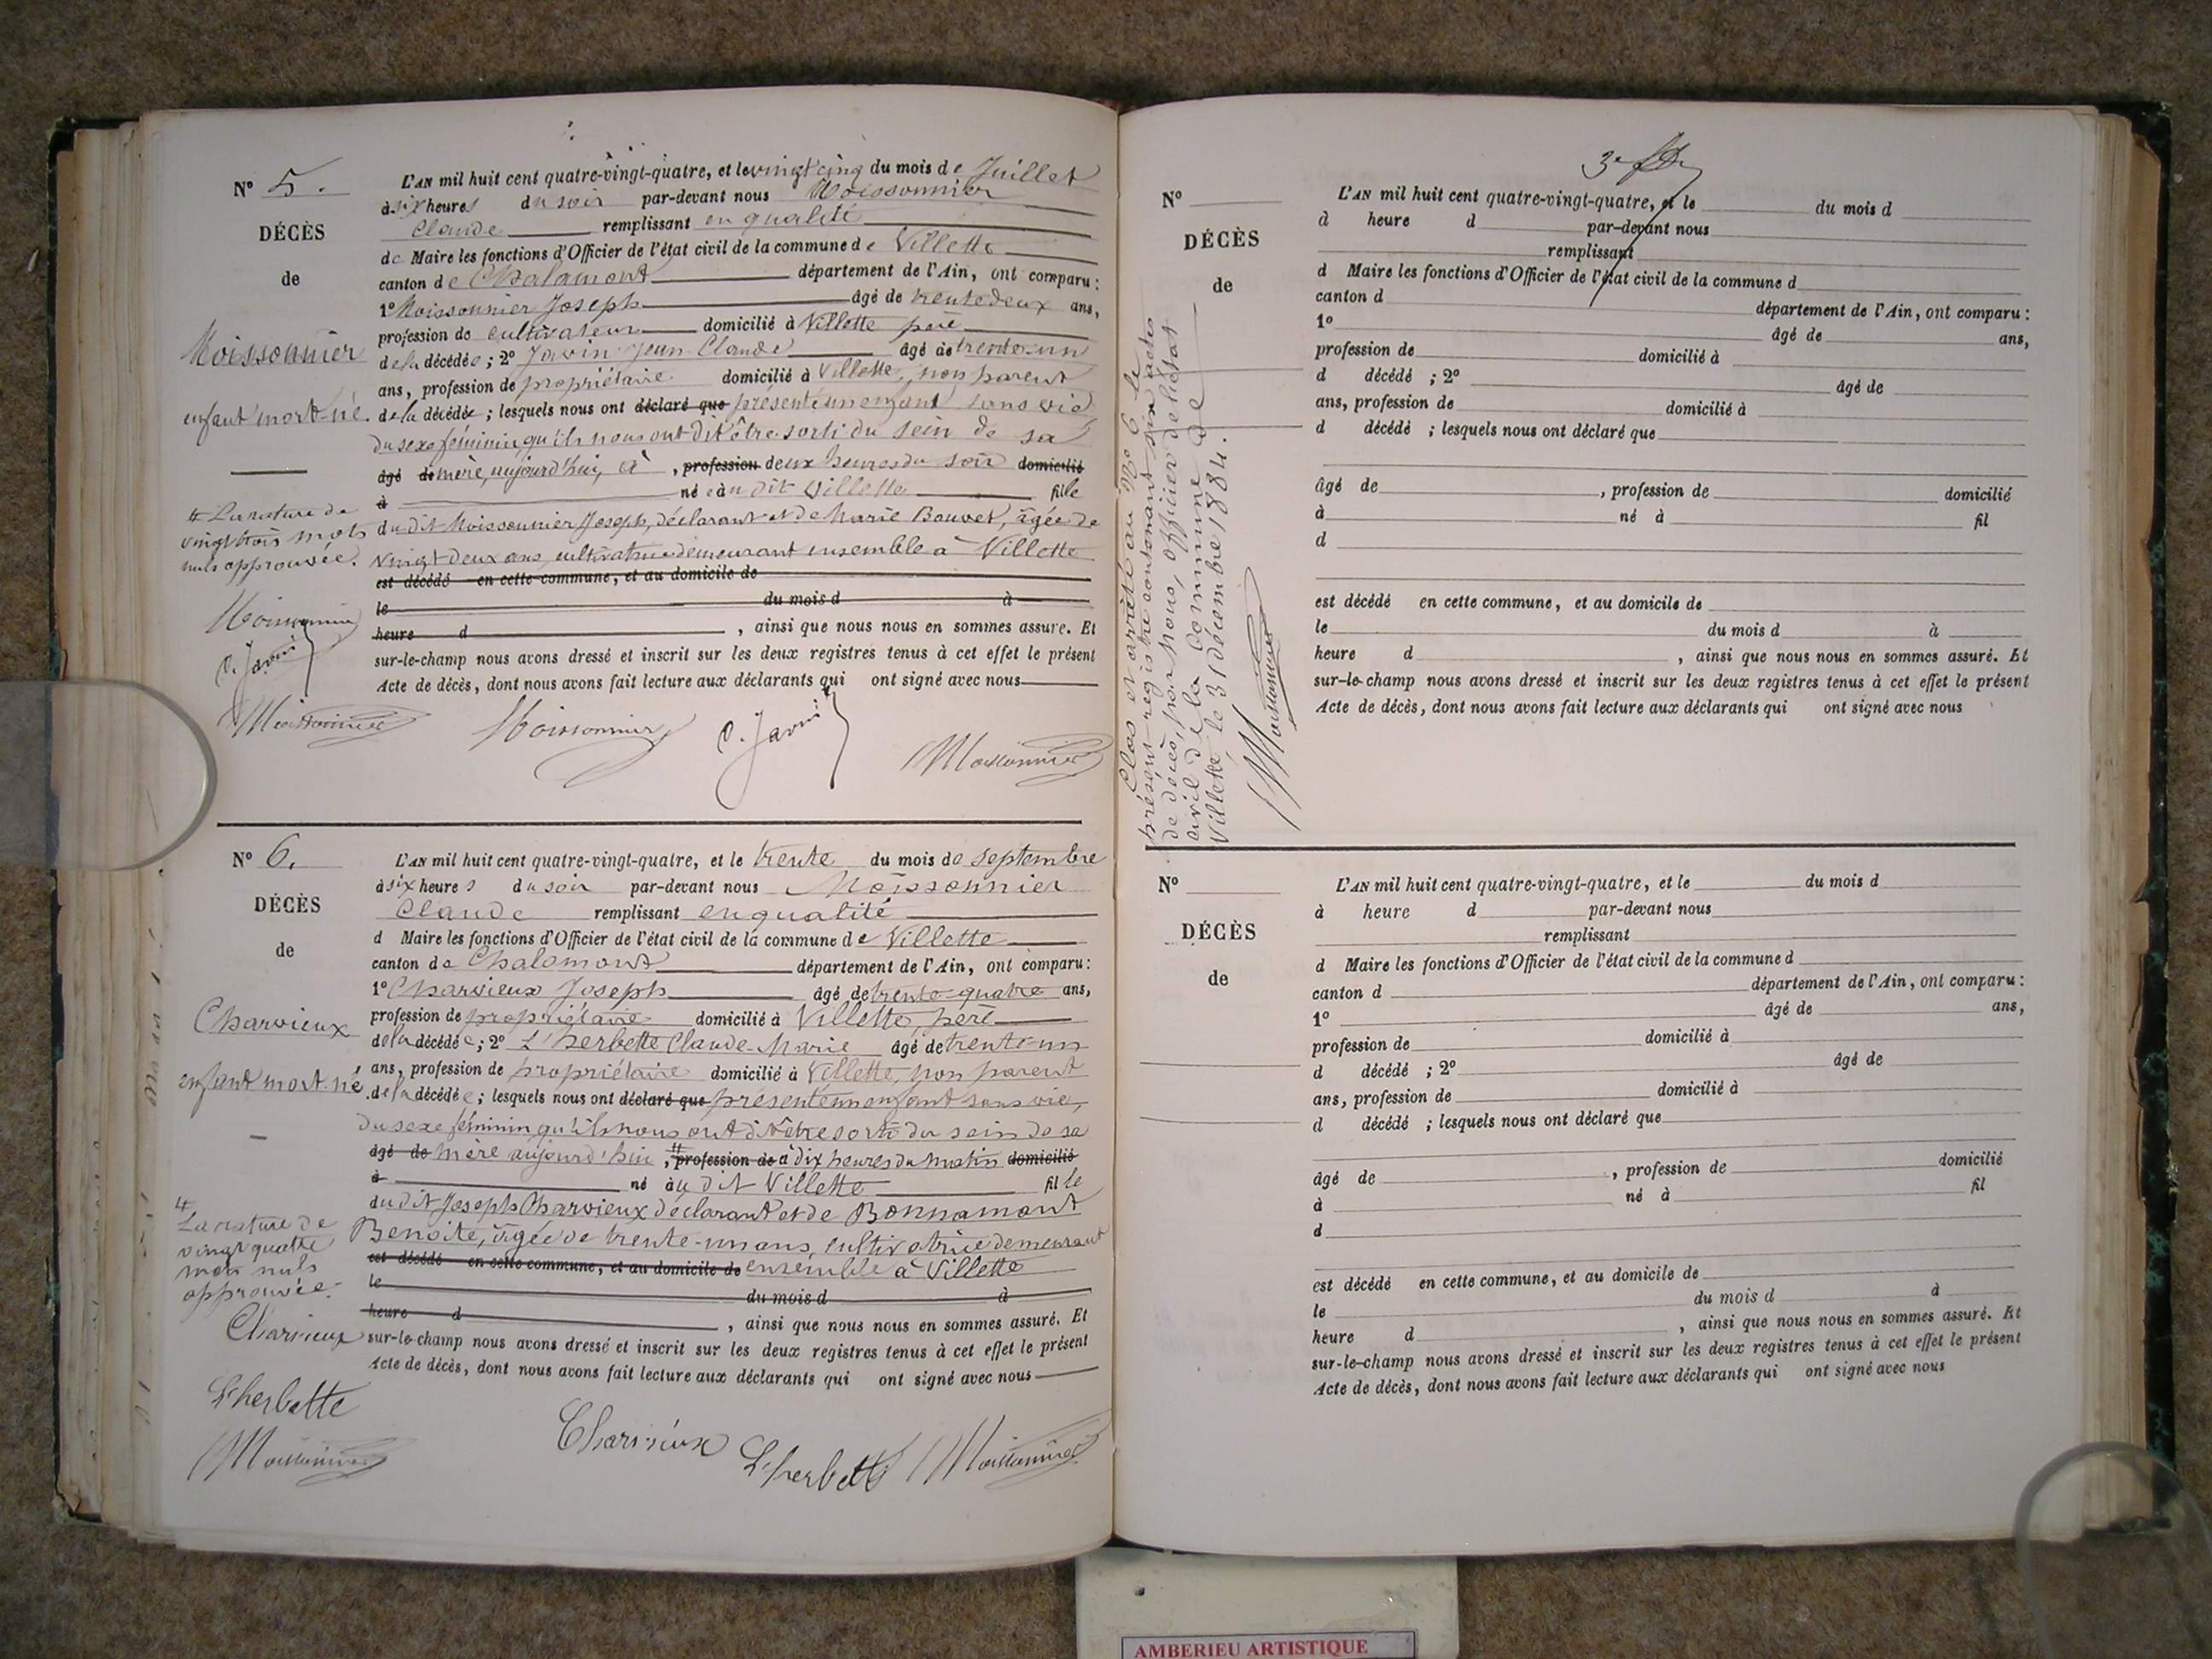 N° 5.
DÉCÈS
de
Moissonnier
enfant mort-né.
L'AN mil huit cent quatre-vingt-quatre, et le vingt cinq du mois de Juillet
à six heures du soir par-devant nous Moissonnier
Claude remplissant en qualité
de Maire les fonctions d'Officier de l'état civil de la commune de Villette
canton de Chalamont département de l'Ain, ont comparu :
1° Moissonnier Joseph âgé de trente deux ans,
profession de cultivateur domicilié à Villette père
de la décédée ; 2° Javin Jean Claude âgé de trente-un
ans, profession de propriétaire domicilié à Villette, non parent
de la décédée ; lesquels nous ont déclaré que présenté un enfant sans vie
du sexe féminin, qu'ils nous ont dit être sorti du sein de sa
âgé de mère, aujourd'hui, à , profession deux heures du soir domicilié
à né e à u dit Villette fille
du dit Moissonnier Joseph, déclarant et de Marie Bouvet, âgée de
vingt-deux ans, cultivatrice demeurant ensemble à Villette
est décédé en cette commune, et au domicile de
le du mois d à
heure d , ainsi que nous nous en sommes assuré. Et
sur-le-champ nous avons dressé et inscrit sur les deux registres tenus à cet effet le présent
Acte de décès, dont nous avons fait lecture aux déclarants qui ont signé avec nous
# La rature de
vingt trois mots
nuls approuvée.
Moissonnier
C. Javin
Moissonnier
Moissonnier C. Javin Moissonnier
N° 6.
DÉCÈS
de
Charvieux
enfant mort-né.
L'AN mil huit cent quatre-vingt-quatre, et le trente du mois de septembre
à six heures du soir par-devant nous Moissonnier
Claude remplissant en qualité
d Maire les fonctions d'Officier de l'état civil de la commune de Villette
canton de Chalamont département de l'Ain, ont comparu :
1° Charvieux Joseph âgé de trente-quatre ans,
profession de propriétaire domicilié à Villette, père
de la décédée ; 2° L'herbette Claude-Marie âgé de trente-un
ans, profession de propriétaire domicilié à Villette, non parent
de la décédée ; lesquels nous ont déclaré que présenté un enfant sans vie,
du sexe féminin qu'ils nous ont dit être sorti du sein de sa
âgé de mère aujourd'hui , # profession de à dix heures du matin domicilié
à né à u dit Villette fille
du dit Joseph Charvieux déclarant et de Bonnamont
Benoite, âgée de trente-un ans, cultivatrice demeurant
est décédé en cette commune, et au domicile de ensemble à Villette
le du mois d à
heure d , ainsi que nous nous en sommes assuré. Et
sur-le-champ nous avons dressé et inscrit sur les deux registres tenus à cet effet le présent
Acte de décès, dont nous avons fait lecture aux déclarants qui ont signé avec nous
#
La rature de
vingt quatre
mots nuls
approuvée.
Charvieux
L'herbette
Moissonnier
Charvieux L'herbette Moissonnier
Clos et arrêté au N° 6 le
présent registre contenant six actes
de décès, par nous, officier de l'état
civil de la commune de
Villette, le 31 décembre 1884.
Moissonnier
N°
DÉCÈS
de
L'AN mil huit cent quatre-vingt-quatre, et le du mois d
à heure d par-devant nous
remplissant
d Maire les fonctions d'Officier de l'état civil de la commune d
canton d département de l'Ain, ont comparu :
1° âgé de ans,
profession de domicilié à
d décédé ; 2° âgé de
ans, profession de domicilié à
d décédé ; lesquels nous ont déclaré que
âgé de , profession de domicilié
à né à fil
d
est décédé en cette commune, et au domicile de
le du mois d à
heure d , ainsi que nous nous en sommes assuré. Et
sur-le-champ nous avons dressé et inscrit sur les deux registres tenus à cet effet le présent
Acte de décès, dont nous avons fait lecture aux déclarants qui ont signé avec nous
N°
DÉCÈS
de
L'AN mil huit cent quatre-vingt-quatre, et le du mois d
à heure d par-devant nous
remplissant
d Maire les fonctions d'Officier de l'état civil de la commune d
canton d département de l'Ain, ont comparu :
1° âgé de ans,
profession de domicilié à
d décédé ; 2° âgé de
ans, profession de domicilié à
d décédé ; lesquels nous ont déclaré que
âgé de , profession de domicilié
à né à fil
d
est décédé en cette commune, et au domicile de
le du mois d à
heure d , ainsi que nous nous en sommes assuré. Et
sur-le-champ nous avons dressé et inscrit sur les deux registres tenus à cet effet le présent
Acte de décès, dont nous avons fait lecture aux déclarants qui ont signé avec nous
AMBERIEU ARTISTIQUE